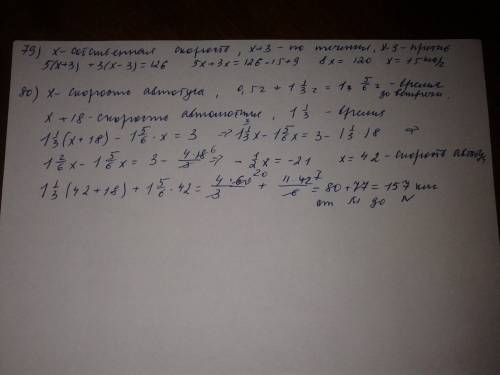 79) x - собственная скорость, x+3 - по течения, x-3 - против
5(x+3) + 3(x-3) = 126 5x+3x = 126-15+9 8x = 120 x = 15 км/ч
80) x - скорость автобуса, 0,5 г + 1 1/3 г = 1 5/6 г - время до встречи.
x + 18 - скорость 1 1/3 - время
1 1/3 (x+18) - 1 5/6 · x = 3 ⇒ 1 1/3 x - 1 5/6 x = 3 - 1 1/3 · 18 ⇒
1 2/6 x - 1 5/6 x = 3 - 4·18/3 6 ⇒ - 1/2 x = -21 x = 42 - скорость
1 1/3 (42+18) + 1 5/6 · 42 = 4·60/3 20 + 11·42/6 7 = 80 + 77 = 157 км
от M до N